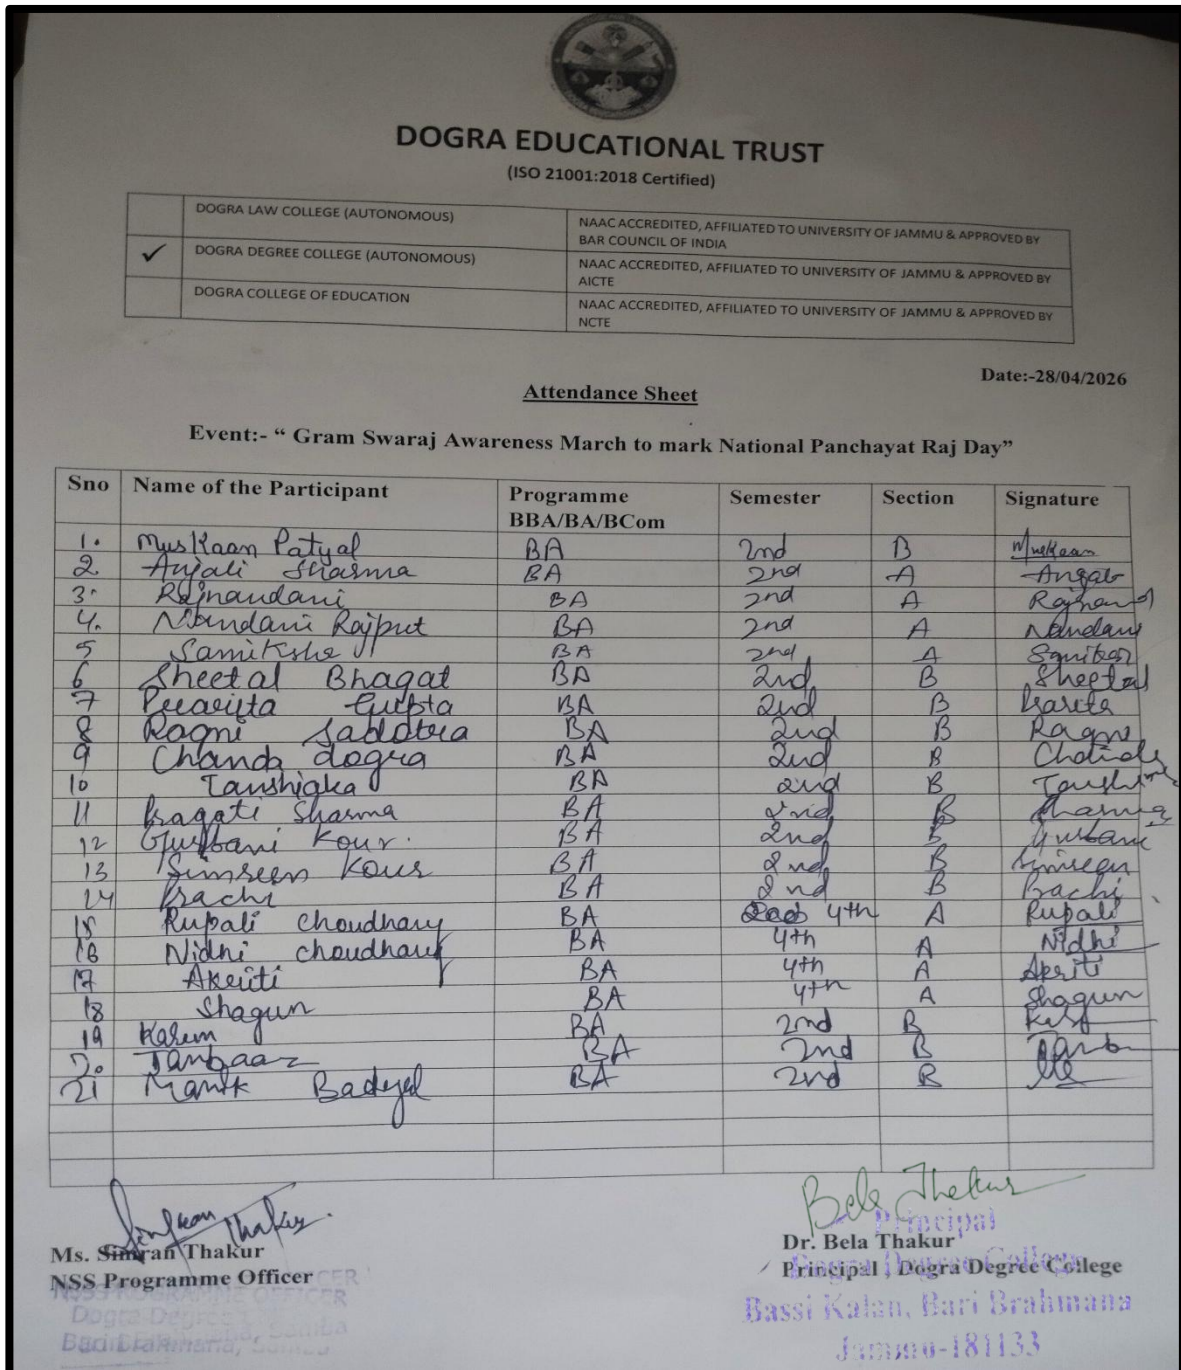 DOGRA EDUCATIONAL TRUST
(ISO 21001:2018 Certified)
DOGRA LAW COLLEGE (AUTONOMOUS) NAAC ACCREDITED, AFFILIATED TO UNIVERSITY OF JAMMU & APPROVED BY
BAR COUNCIL OF INDIA
✓ DOGRA DEGREE COLLEGE (AUTONOMOUS) NAAC ACCREDITED, AFFILIATED TO UNIVERSITY OF JAMMU & APPROVED BY
AICTE
DOGRA COLLEGE OF EDUCATION NAAC ACCREDITED, AFFILIATED TO UNIVERSITY OF JAMMU & APPROVED BY
NCTE
Date:-28/04/2026
Attendance Sheet
Event:- “ Gram Swaraj Awareness March to mark National Panchayat Raj Day”
Sno Name of the Participant Programme Semester Section Signature
BBA/BA/BCom
1. Muskaan Patyal BA 2nd B Muskaan
2. Anjali Sharma BA 2nd A
3. Rajnandani BA 2nd A
4. Nandani Rajput BA 2nd A Nandani
5 Samiksha BA 2nd A
6 Sheetal Bhagat BA 2nd B Sheetal
7 Gupta BA 2nd B
8 Ragni Sadotra BA 2nd B Ragni
9 Chanda dogra BA 2nd B
10 Tanshigka BA 2nd B
11 Pragati Sharma BA 2nd B Sharma
12 Gurbani Kour. BA 2nd B Gurbani
13 Simreen Kour BA 2nd B Simreen
14 Prachi BA 2nd B Prachi
15 Rupali choudhary BA 4th A Rupali
16 Nidhi choudhary BA 4th A Nidhi
17 Akriti BA 4th A Akriti
18 Shagun BA 4th A Shagun
19 BA 2nd B
20 BA 2nd B
21 Manik Badyal BA 2nd B
Simran Thakur. Bela Thakur
Principal
Ms. Simran Thakur Dr. Bela Thakur
NSS Programme Officer Principal , Dogra Degree College
Dogra Degree College
NSS PROGRAMME OFFICER
Bassi Kalan, Bari Brahmana
Dogra Degree
Bari Brahmana, Samba
Jammu-181133